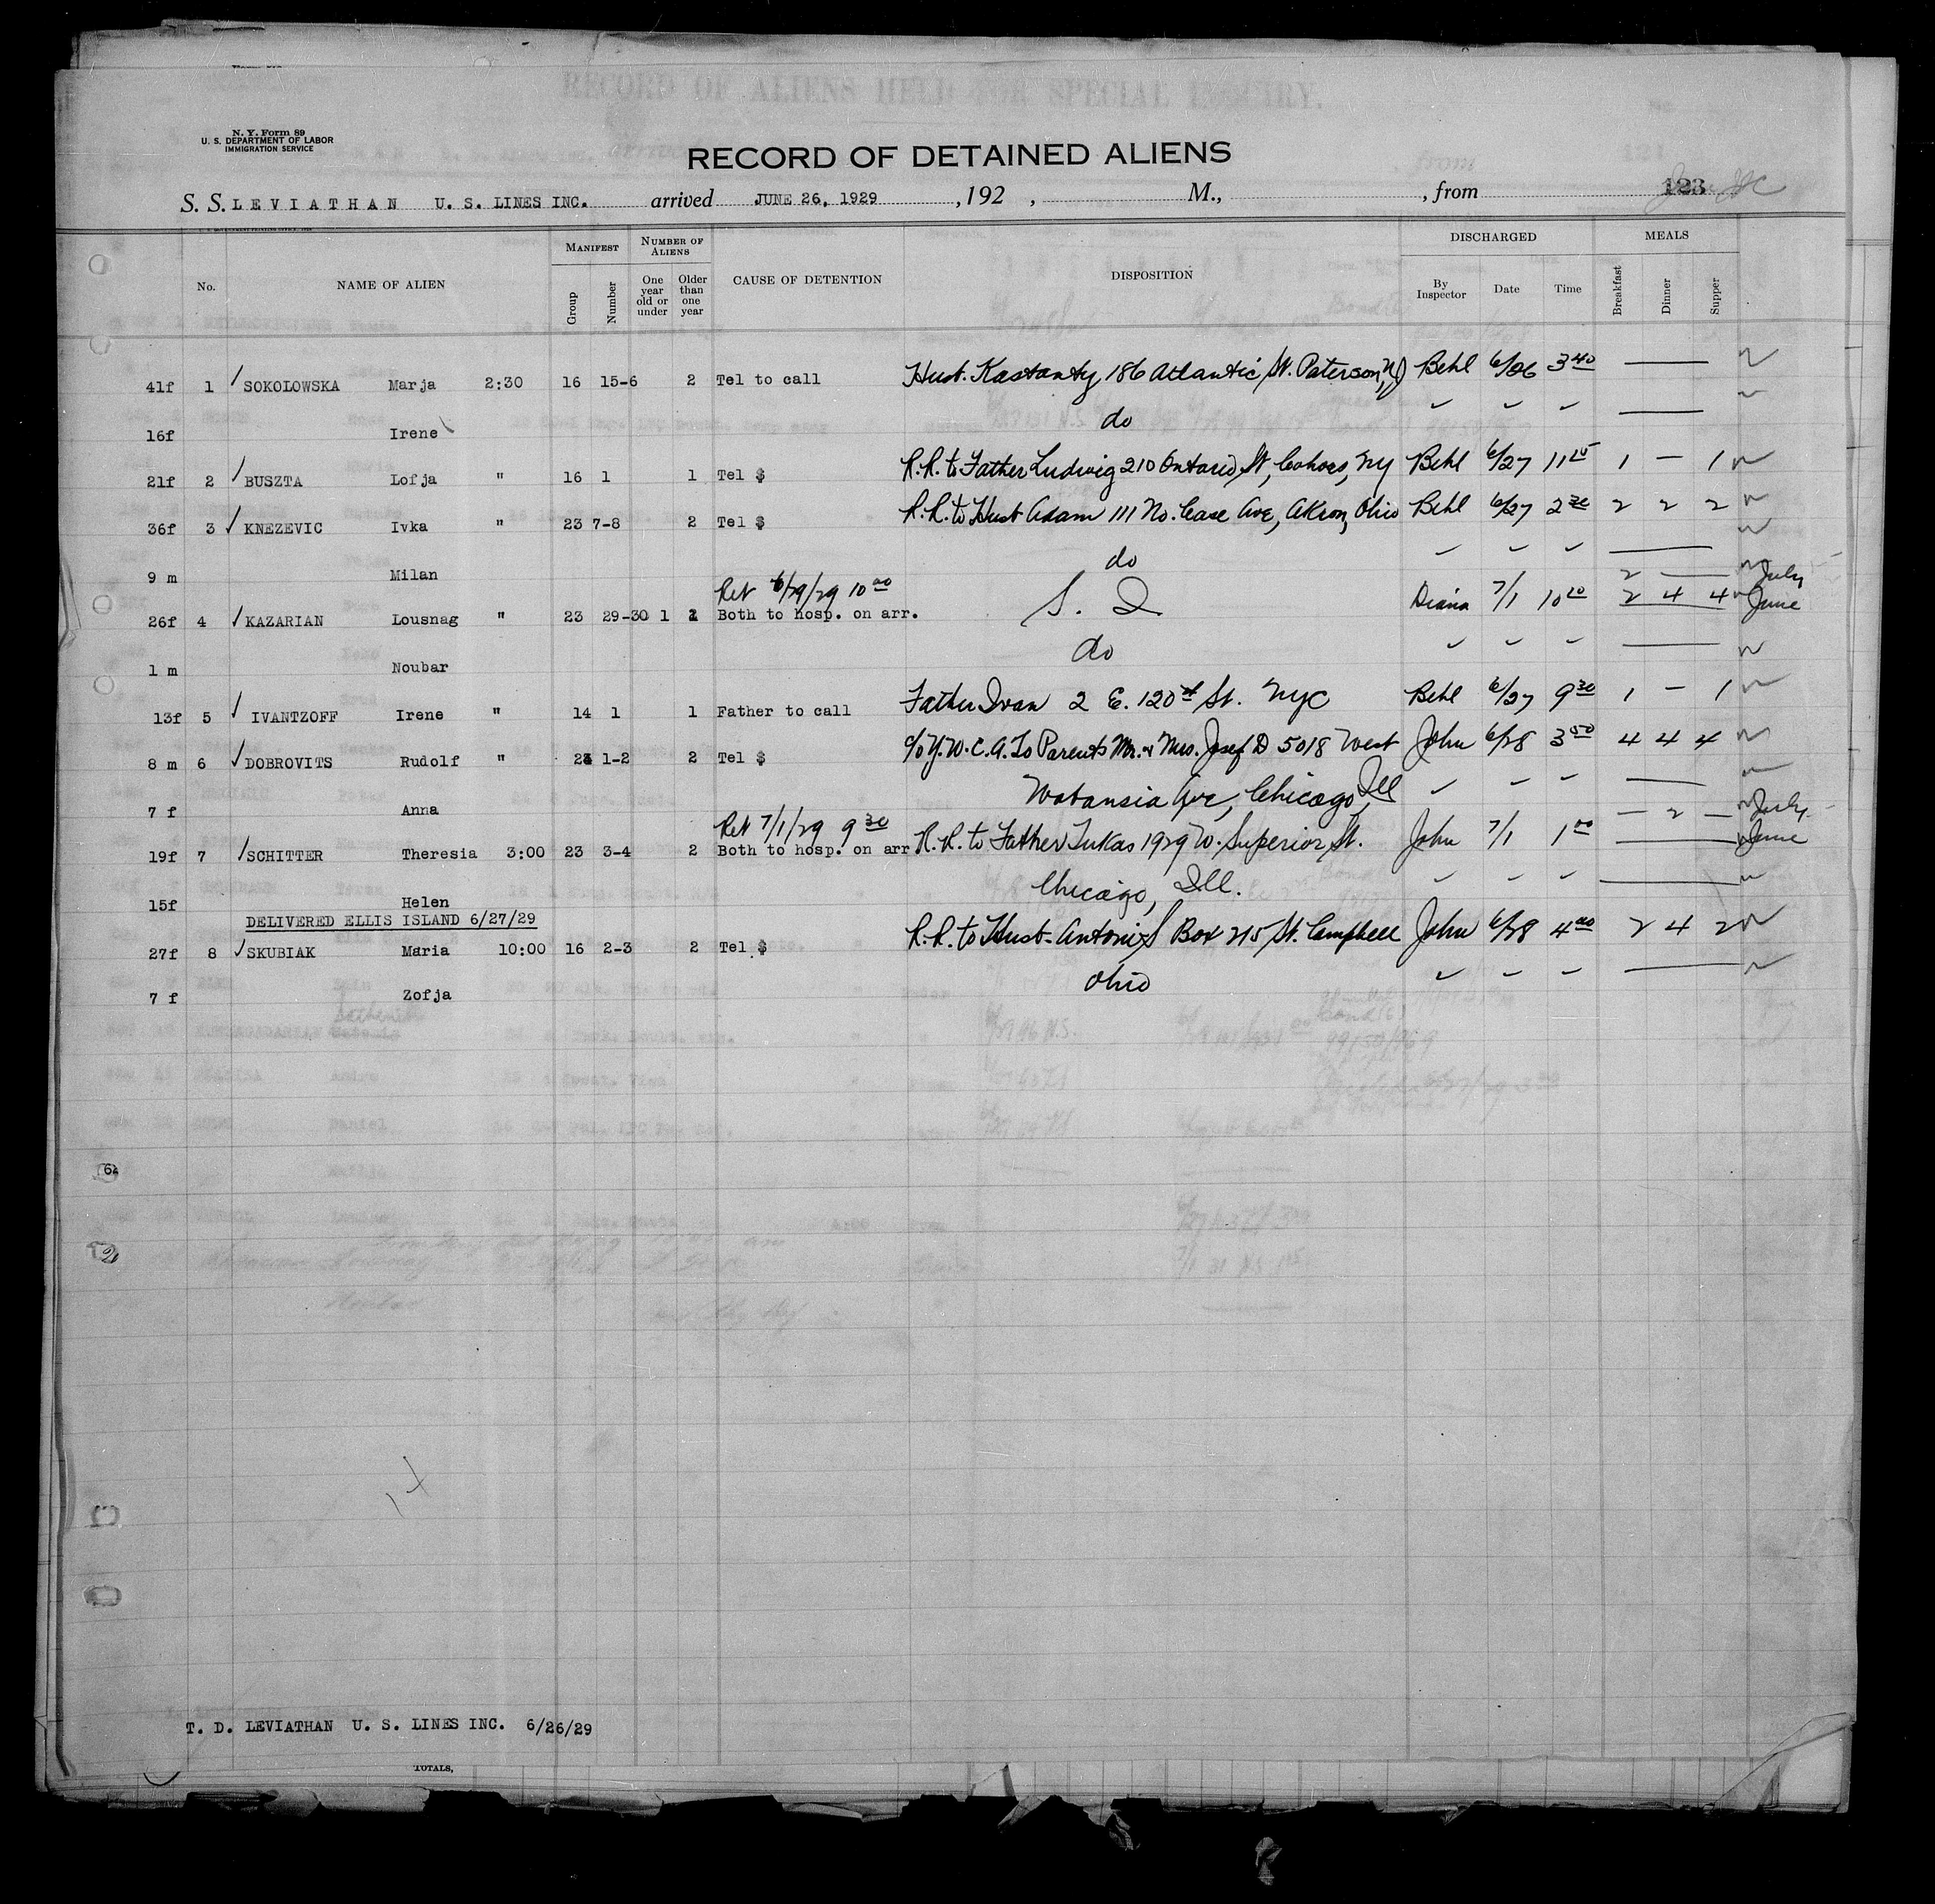 N. Y. Form 89
U. S. DEPARTMENT OF LABOR
IMMIGRATION SERVICE
RECORD OF ALIENS HELD FOR SPECIAL INQUIRY.
RECORD OF DETAINED ALIENS
S. S. LEVIATHAN U. S. LINES INC. arrived JUNE 26, 1929 , 192 , M., , from 123
No. NAME OF ALIEN MANIFEST Group Number NUMBER OF ALIENS One year old or under Older than one year CAUSE OF DETENTION DISPOSITION DISCHARGED By Inspector Date Time MEALS Breakfast Dinner Supper
41f 1 SOKOLOWSKA Marja 2:30 16 15-6 2 Tel to call Hust. Kastanty, 186 Atlantic St. Paterson, NJ Behl 6/26 3 40
16f Irene do
21f 2 BUSZTA Lofja " 16 1 1 Tel $ R.R. to Father Ludwig 210 Ontario St, Cohoes, NY Behl 6/27 11 15 1 — 1
36f 3 KNEZEVIC Ivka " 23 7-8 2 Tel $ R.R. to Hust Adam 111 No. Case Ave, Akron, Ohio Behl 6/27 2 30 2 2 2
9 m Milan do
Ret 6/29/29 10 00 2 — July
26f 4 KAZARIAN Lousnag " 23 29-30 1 1 Both to hosp. on arr. S. I Diana 7/1 10 20 2 4 4 June
1 m Noubar do
13f 5 IVANTZOFF Irene " 14 1 1 Father to call Father Ivan 2 E. 120th St. NYC Behl 6/27 9 30 1 — 1
8 m 6 DOBROVITS Rudolf " 23 1-2 2 Tel $ c/o Y.W.C.A. To Parents Mr. & Mrs. Josef D 5018 West John 6/28 3 50 4 4 4
7 f Anna Wabansia Ave, Chicago, Ill
Ret 7/1/29 9 30 — 2 — July
19f 7 SCHITTER Theresia 3:00 23 3-4 2 Both to hosp. on arr R.R. to Father Lukas 1929 W. Superior St. John 7/1 1 00 June
15f Helen Chicago, Ill.
DELIVERED ELLIS ISLAND 6/27/29
27f 8 SKUBIAK Maria 10:00 16 2-3 2 Tel $ R.R. to Hust- Antoni S Box 215 St. Campbell John 6/28 4 00 2 4 2
7 f Zofja Ohio
T. D. LEVIATHAN U. S. LINES INC. 6/26/29
TOTALS,